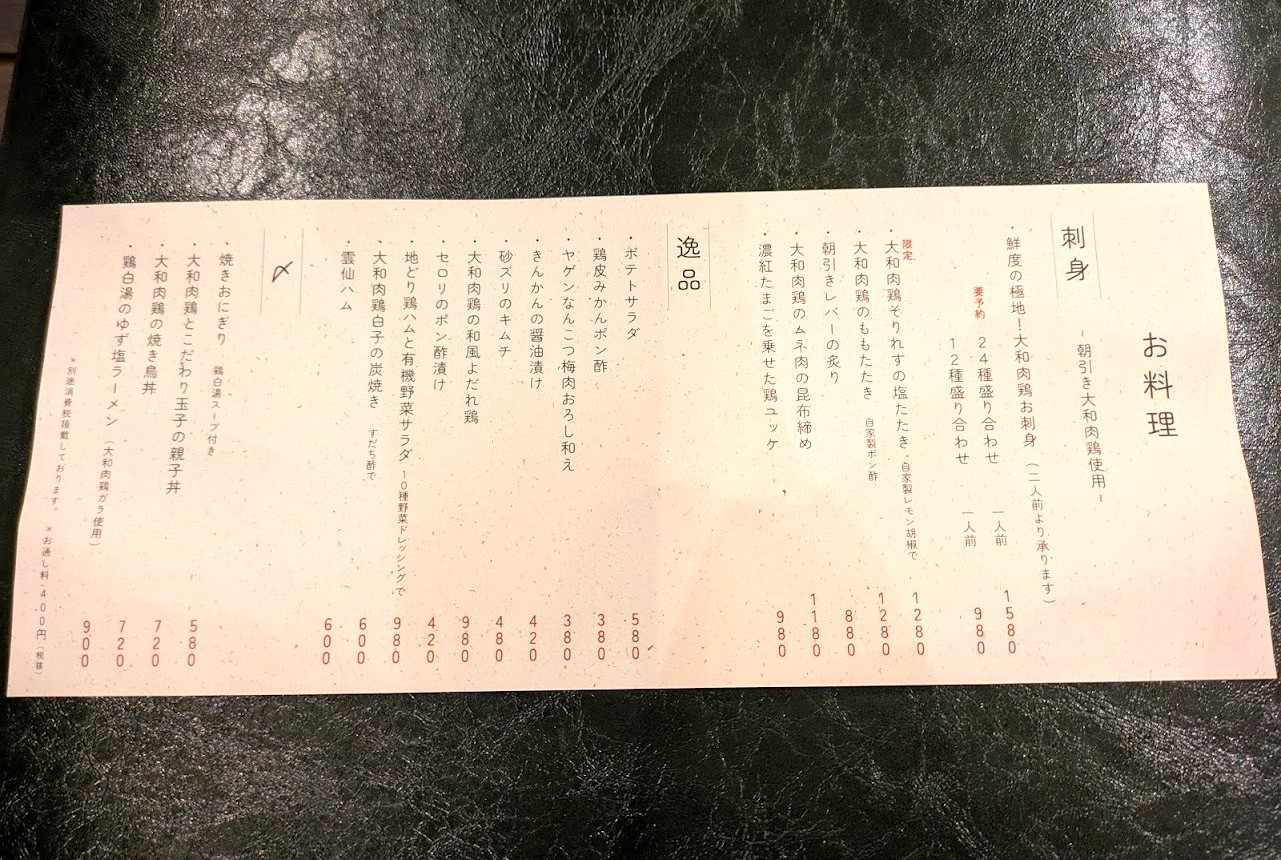 お料理
~朝引き大和肉鶏使用~
刺身
・鮮度の極地!大和肉鶏お刺身(二人前より承ります)
要予約 24種盛り合わせ 一人前 1580
12種盛り合わせ 一人前 980
限定
・大和肉鶏そりれすの塩たたき・自家製レモン胡椒で 1280
・大和肉鶏のももたたき 自家製ポン酢 1280
・朝引きレバーの炙り 880
・大和肉鶏のムネ肉の昆布締め 1180
・濃紅たまごを乗せた鶏ユッケ 980
逸品
・ポテトサラダ 580
・鶏皮みかんポン酢 380
・ヤゲンなんこつ梅肉おろし和え 380
・きんかんの醤油漬け 420
・砂ズリのキムチ 480
・大和肉鶏の和風よだれ鶏 980
・セロリのポン酢漬け 420
・地どり鶏ハムと有機野菜サラダ 10種野菜ドレッシングで 980
・大和肉鶏白子の炭焼き すだち酢で 600
・雲仙ハム 600
〆
・焼きおにぎり 鶏白湯スープ付き 580
・大和肉鶏とこだわり玉子の親子丼 720
・大和肉鶏の焼き鳥丼 720
・鶏白湯のゆず塩ラーメン(大和肉鶏ガラ使用) 900
*別途消費税頂戴しております。 *お通し料 400円(税抜)